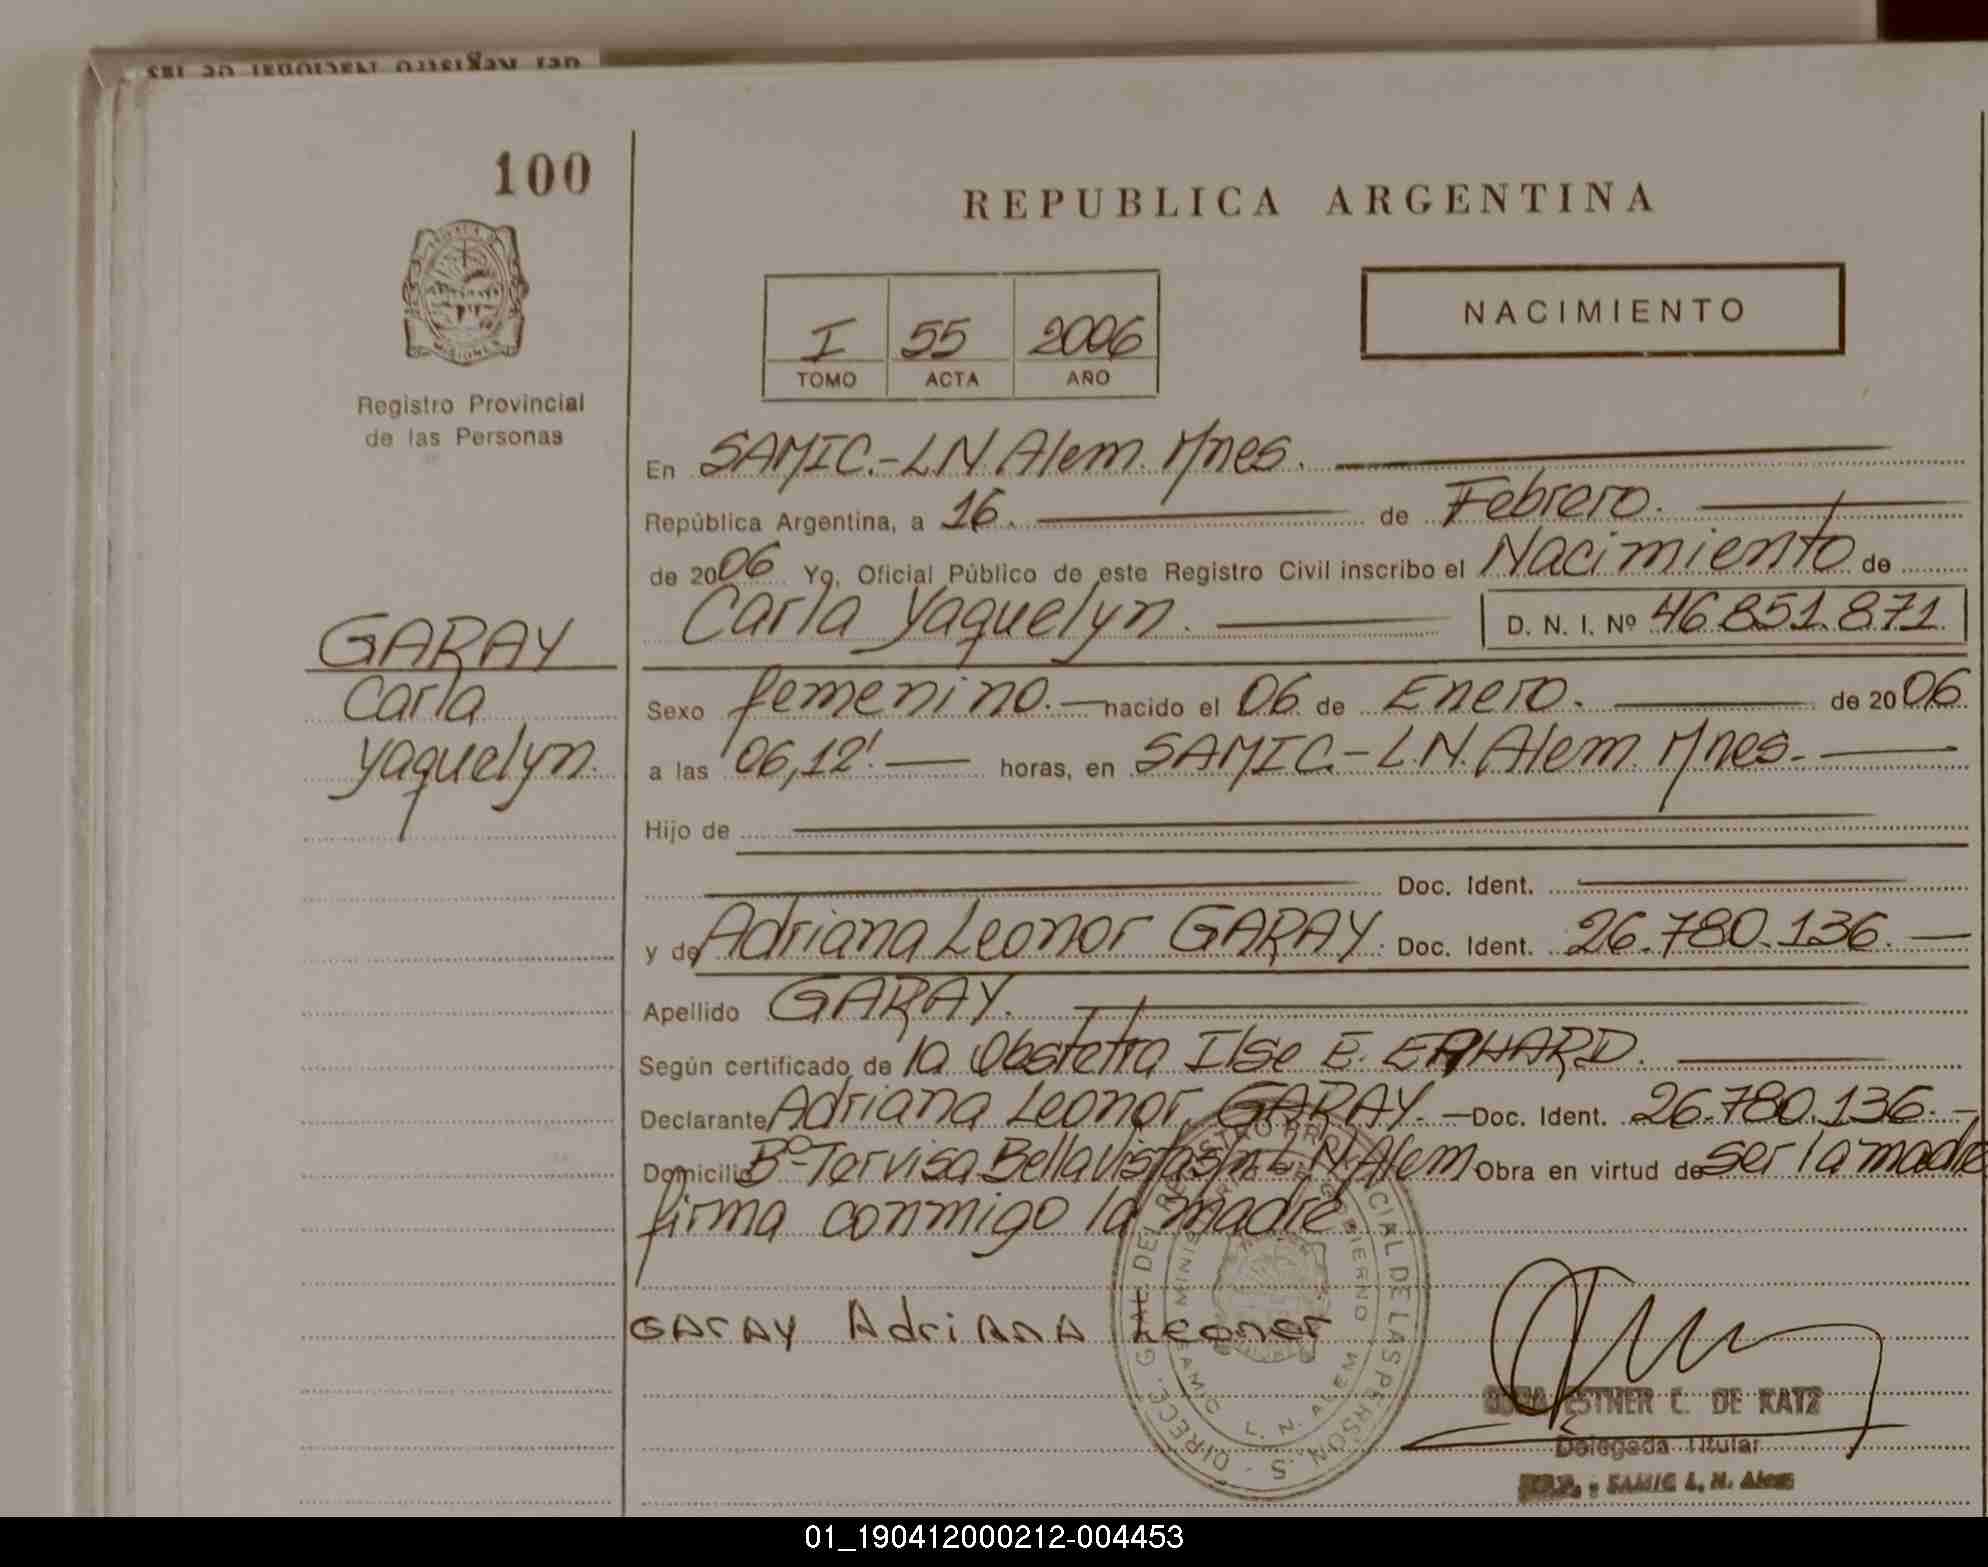 100
REPUBLICA ARGENTINA
NACIMIENTO
I 55 2006
TOMO ACTA AÑO
MISIONES
Registro Provincial
de las Personas
En SAMIC.-L.N. Alem. Mnes.
República Argentina, a 16. de Febrero.
de 2006 Yo, Oficial Público de este Registro Civil inscribo el Nacimiento de
Carla Yaquelyn. D. N. I. Nº 46.851.871.
GARAY
Carla
Yaquelyn.
Sexo femenino.- nacido el 06 de Enero. de 2006.
a las 06,12' horas, en SAMIC.-L.N. Alem. Mnes.-
Hijo de
Doc. Ident.
y de Adriana Leonor GARAY. Doc. Ident. 26.780.136.
Apellido GARAY.
Según certificado de la Obstetra Ilse E. ERHARD.
Declarante Adriana Leonor GARAY.- Doc. Ident. 26.780.136.-
Domicilio Bº-Tervisa Bella Vista s/n L.N. Alem. Obra en virtud de ser la madre
firma conmigo la madre
GArAy AdriAnA Leonor
DIRECC. GRAL DEL REGISTRO PROVINCIAL DE LAS PERSONAS
SAMIC L. N. ALEM
ESTHER C. DE KATZ
Delegada Titular
SAMIC L. N. Alem
01_190412000212-004453